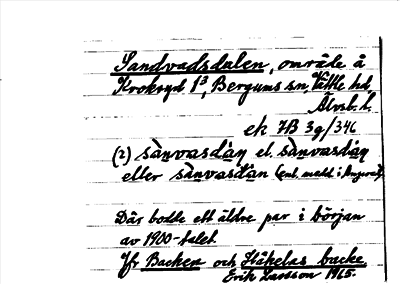 Sandvadsdalen, område å
Krokryd 1³, Bergums sn, Vättle hd,
Älvsb. l.
ek 7B 3g/346
(2) sànvasdàn el. sànvasdàn
eller sànvasdan (enl. medd. i
Där bodde ett äldre par i början
av 1900-talet.
Jfr Backen och Håkelas backe
Erik Larsson 1965.